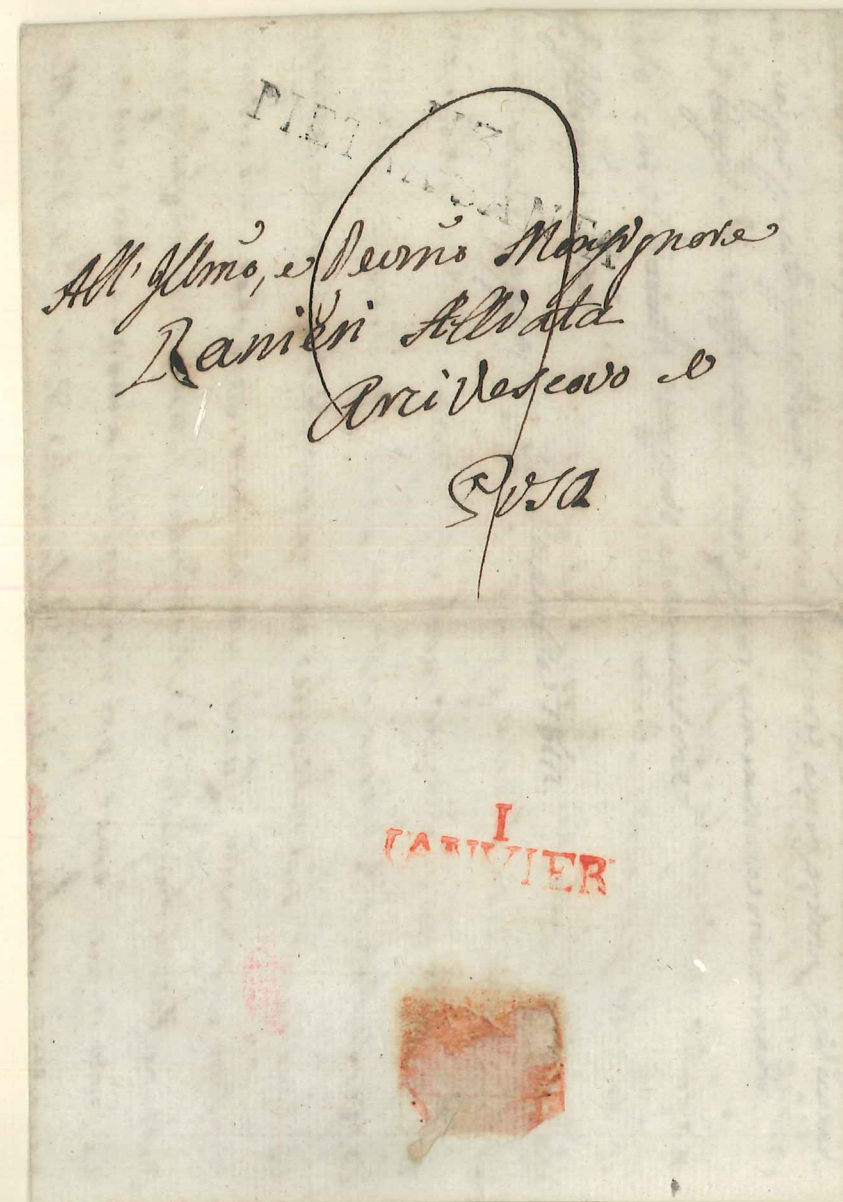 113
PIETRASANTA
All' Illmo, e Revmo Monsignore
Ranieri Alliata
Arcivescovo
Pisa
I
JANVIER